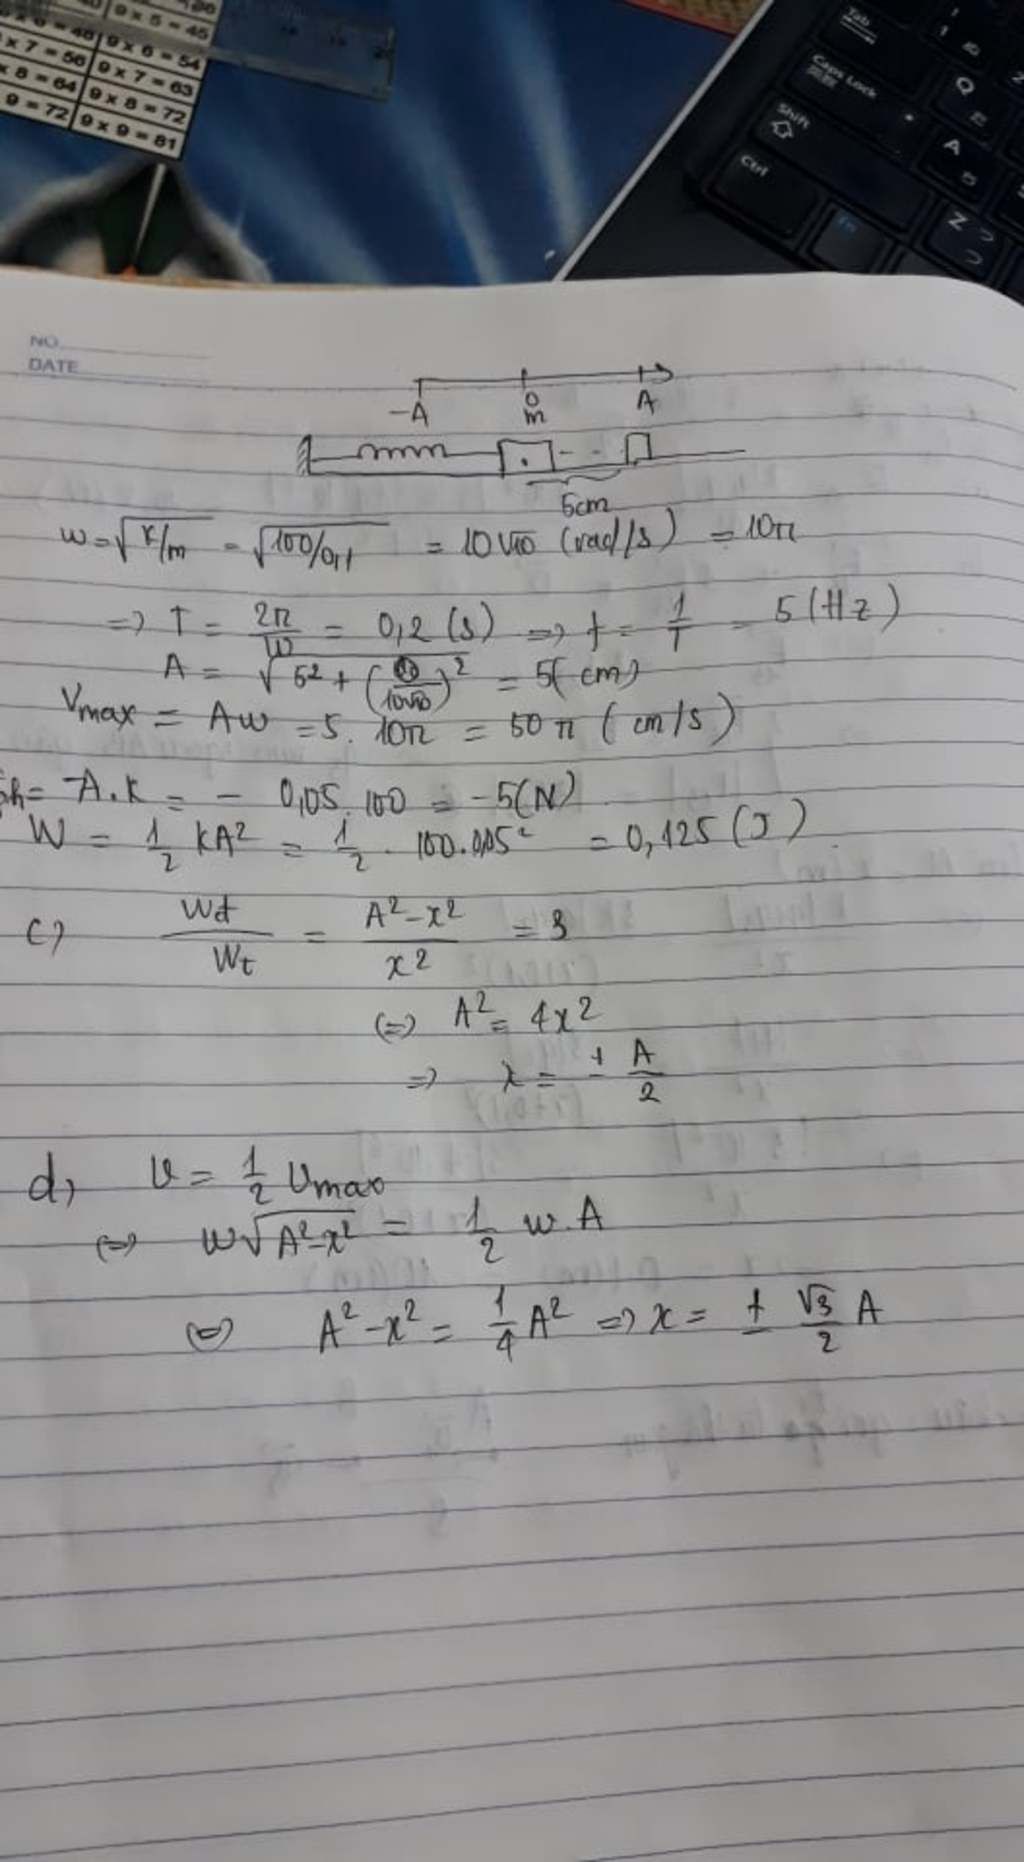 9 x 5 = 45
9 x 6 = 54
x 7 = 56 9 x 7 = 63
x 8 = 64 9 x 8 = 72
9 = 72 9 x 9 = 81
Tab
Caps Lock
Shift
Ctrl
Fn
Q
A
Z
1
NO.
DATE
-A O A
m
5cm
w = √k/m = √100/0,1 = 10√10 (rad/s) = 10π
=> T = 2π/w = 0,2 (s) => f = 1/T = 5 (Hz)
A = √5² + (0/10√10)² = 5(cm)
Vmax = Aw = 5. 10π = 50π (cm/s)
đh = -A.k = - 0,05.100 = -5(N)
W = 1/2 kA² = 1/2 . 100.0,05² = 0,125 (J)
c) Wđ/Wt = A²-x²/x² = 3
(=) A² = 4x²
=> x = ± A/2
d, v = 1/2 vmax
(=) w√A²-x² = 1/2 w.A
(=) A²-x² = 1/4 A² => x = ± √3/2 A